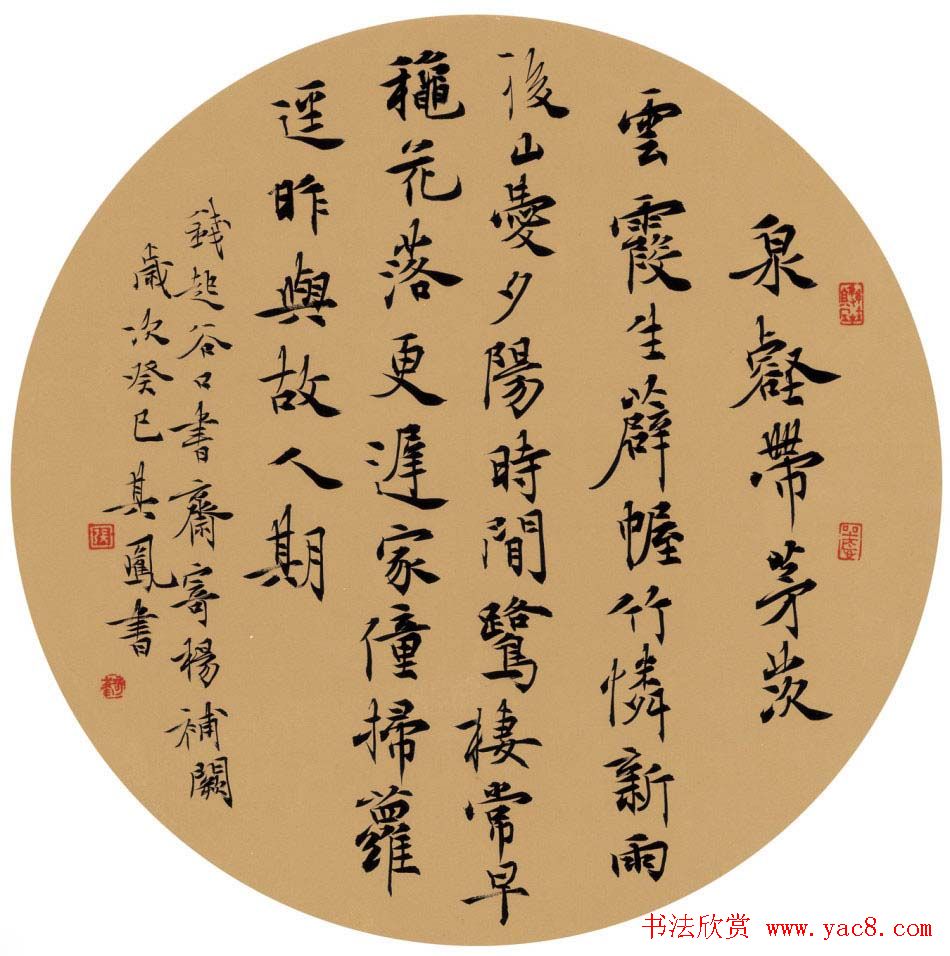 泉壑帶茅茨
雲霞生薜幄竹憐新雨
後山愛夕陽時閒鷺棲常早
穐花落更遲家僮掃蘿
逕昨與故人期
錢起谷口書齋寄楊補闕
歲次癸巳其鳳書
书法欣赏 www.yac8.com